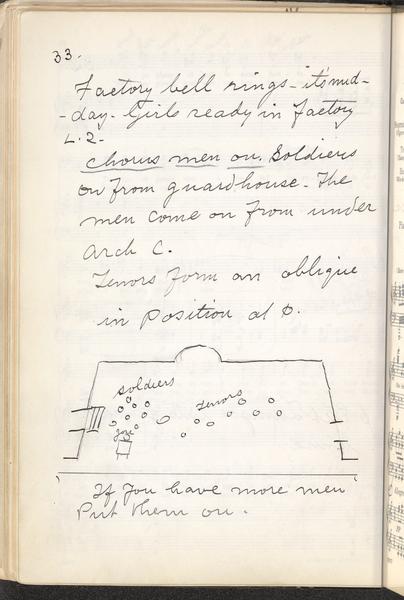 33.
Factory bell rings - it's mid-
-day. Girls ready in factory
L. 2-
chorus men on. Soldiers
on from guardhouse. The
men come on from under
arch C.
Tenors form an oblique
in position at
soldiers
Tenors
José
If you have more men
Put them on.